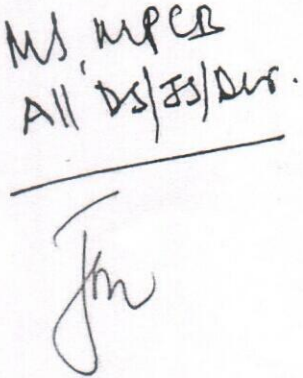 MS, MPCB
All DS/JS/Dir.